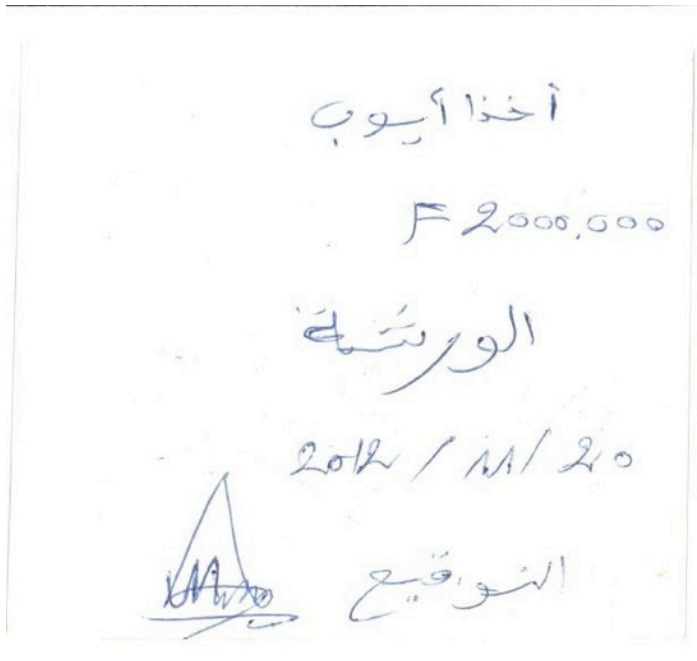 أخذ أيوب
F 2000.000
الورشة
2012 / 11 / 20
التوقيع